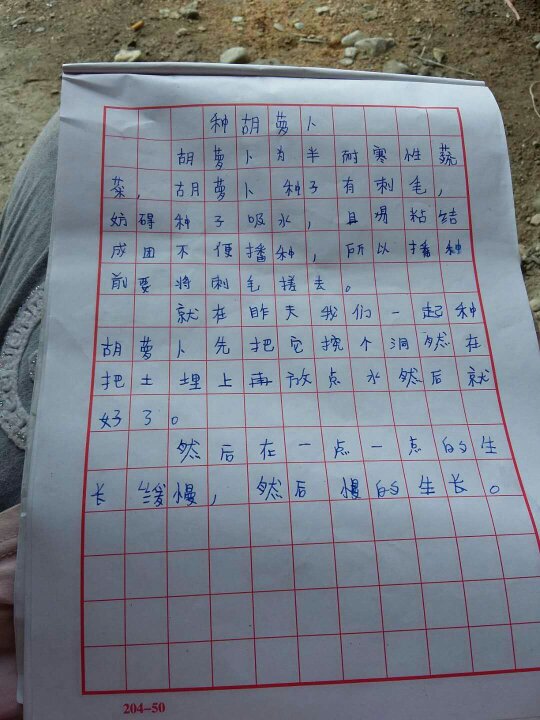 种胡萝卜
胡萝卜为半耐寒性蔬
菜，胡萝卜种子有刺毛，
妨碍种子吸水，且易粘结
成团不便播种，所以播种
前要将刺毛搓去。
就在昨天我们一起种
胡萝卜先把它挖个洞然在
把土埋上再放点水然后就
好了。
然后在一点一点的生
长缓慢，然后慢的生长。
204-50